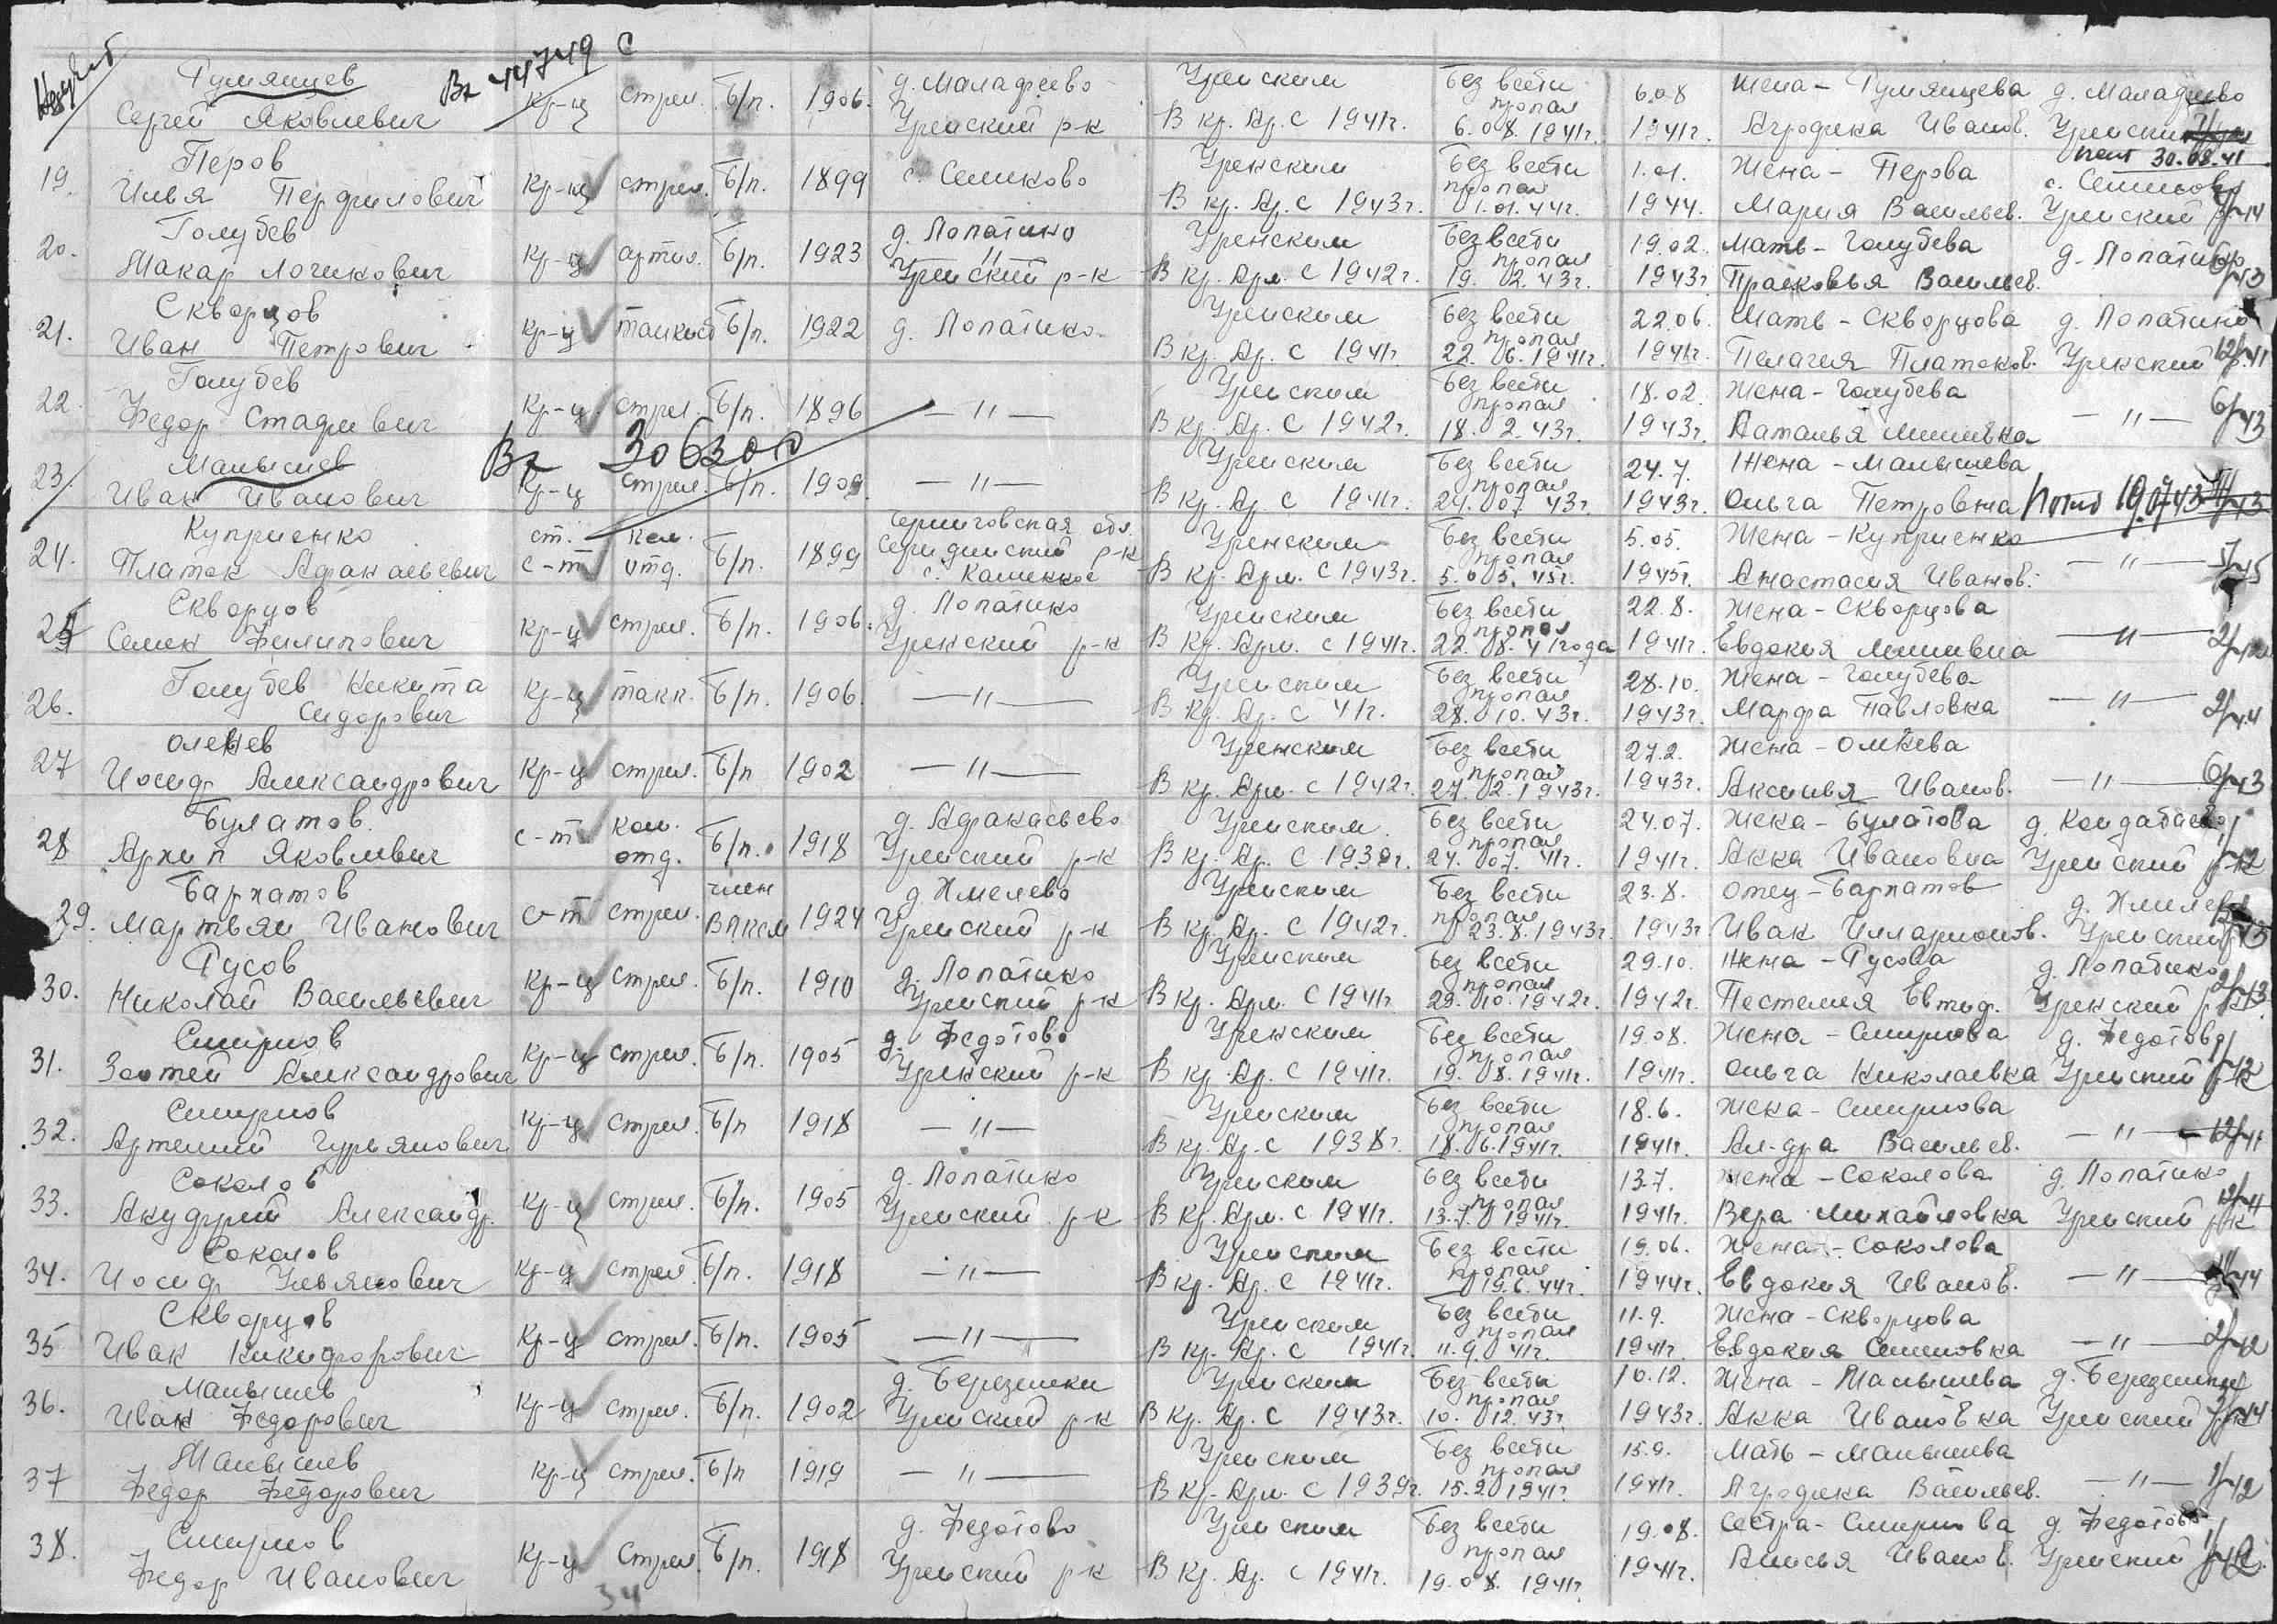 Вх 44749 с
Румянцев Кр-ц стрел. Б/п. 1906. д. Малафеево Уренским Без вести пропал 6.08 Жена - Румянцева д. Малафеево
Сергей Яковлевич Уренский р-к В Кр. Ар. с 1941г. 6.08.1941г. 1941г. Агрофена Иванов. Уренский
погиб 30.08.41
19. Перов Кр-ц стрел. Б/п. 1899 с. Семеново Уренским Без вести пропал 1.01. Жена - Перова с. Семеново
Илья Перфилович В Кр. Ар. с 1943г. 01.01.44г. 1944. Мария Васильев. Уренский
20. Голубев Кр-ц артил. Б/п. 1923 д. Лопатино Уренским Без вести пропал 19.02. Мать - Голубева д. Лопатино 6/43
Макар Логинович Уренский р-к В Кр. Арм. с 1942г. 19.02.43г. 1943г Прасковья Васильев.
21. Скворцов Кр-ц танкист Б/п. 1922 д. Лопатино Уренским Без вести пропал 22.06. Мать - Скворцова д. Лопатино
Иван Петрович В Кр. Ар. с 1941г. 22.06.1941г. 1941г. Пелагея Платонов. Уренский 12/41
22. Голубев Кр-ц стрел. Б/п. 1896 — " — Уренским Без вести пропал 18.02. Жена - Голубева — " — 6/43
Федор Стафиевич В Кр. Ар. с 1942г. 18.02.43г. 1943г. Наталья
Вх 306300
23. Малышев Кр-ц стрел. Б/п. 1909 — " — Уренским Без вести пропал 24.7. Жена - Малышева
Иван Иванович В Кр. Ар. с 1941г. 24.07.43г. 1943г. Ольга Петровна
24. Куприенко ст. с-т ком. отд. Б/п. 1899 Черниговская обл. р-к Уренским Без вести пропал 5.05. Жена - Куприенко — " —
Платон Афанасьевич В Кр. Арм. с 1943г. 5.05.45г. 1945г. Анастасия Иванов.
25 Скворцов Кр-ц стрел. Б/п. 1906. д. Лопатино Уренским Без вести пропал 22.8. Жена - Скворцова — " —
Семен Филипович Уренский р-к В Кр. Арм. с 1941г. 22.08.41года 1941г. Евдокия
26. Голубев Никита Кр-ц танк. Б/п. 1906. — " — Уренским Без вести пропал 28.10. Жена - Голубева — " — 2/44
Сидорович В Кр. Ар. с 41г. 28.10.43г. 1943г. Марфа Павловна
27 Оленев Кр-ц стрел. Б/п 1902 — " — Уренским Без вести пропал 27.2. Жена - Олнева — " — 6/43
Иосиф Александрович В Кр. Арм. с 1942г. 27.02.1943г. 1943г. Аксинья Иванов.
28 Булатов с-т ком. отд. Б/п. 1918 д. Афанасьево Уренским Без вести пропал 24.07. Жена - Булатова
Архип Яковлевич Уренский р-к В Кр. Ар. с 1939г. 24.07.41г. 1941г. Анна Ивановна Уренский р-к
29. Бархатов с-т стрел. член ВЛКСМ 1924 д. Хмелево Уренским Без вести пропал 23.8. Отец - Бархатов д. Хмелево
Мартьян Иванович Уренский р-к В Кр. Ар. с 1942г. 23.8.1943г. 1943г Иван Илларионов. Уренский
30. Русов Кр-ц стрел. Б/п. 1910 д. Лопатино Уренским Без вести пропал 29.10. Жена - Русова д. Лопатино
Николай Васильевич Уренский р-к В Кр. Арм. с 1941г. 29.10.1942г. 1942г. Уренский
31. Смирнов Кр-ц стрел. Б/п. 1905 д. Федотово Уренским Без вести пропал 19.08. Жена - Смирнова д. Федотово
Зотей Александрович Уренский р-к В Кр. Ар. с 1941г. 19.08.1941г. 1941г. Ольга Николаевна Уренский р-к
32. Смирнов Кр-ц стрел. Б/п 1918 — " — Уренским Без вести пропал 18.6. Жена - Смирнова — " — 12/41
Артемий Гурьянович В Кр. Ар. с 1938г. 18.06.1941г. 1941г. Ал-дра Васильев.
33. Соколов Кр-ц стрел. Б/п. 1905 д. Лопатино Уренским Без вести пропал 13.7. Жена - Соколова д. Лопатино
Александр. Уренский р-к В Кр. Арм. с 1941г. 13.7.1941г. 1941г. Вера Михайловна Уренский р-к
34. Соколов Кр-ц стрел. Б/п. 1918 — " — Уренским Без вести пропал 19.06. Жена - Соколова — " —
Иосиф Ульянович В Кр. Ар. с 1941г. 19.6.44г. 1944г. Евдокия Иванов.
35 Скворцов Кр-ц стрел. Б/п. 1905 — " — Уренским Без вести пропал 11.9. Жена - Скворцова — " — 2/42
Иван Никифорович В Кр. Ар. с 1941г. 11.9.41г. 1941г. Евдокия Семеновна
36. Малышев Кр-ц стрел. Б/п. 1902 д. Березники Уренским Без вести пропал 10.12. Жена - Малышева д. Березники
Иван Федорович Уренский р-к В Кр. Ар. с 1943г. 10.12.43г. 1943г. Анна Ивановна Уренский
37 Малышев Кр-ц стрел. Б/п 1919 — " — Уренским Без вести пропал 15.9. Мать - Малышева — " — 1/42
Федор Федорович В Кр. Арм. с 1939г. 15.9.1941г. 1941г. Агрофена Васильев.
38. Смирнов Кр-ц стрел. Б/п. 1918 д. Федотово Уренским Без вести пропал 19.08. Сестра - Смирнова д. Федотово
Федор Иванович Уренский р-к В Кр. Ар. с 1941г. 19.08.1941г 1941г. Анисья Иванов. Уренский
34